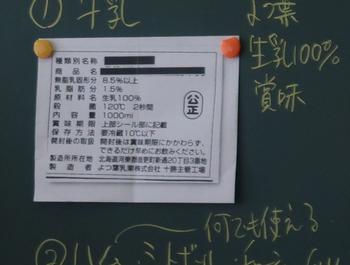 ① 牛乳
よつ葉
生乳100%
賞味
種類別名称
商品名
無脂乳固形分 8.5%以上
乳脂肪分 1.5%
原材料名 生乳100%
殺菌 120℃ 2秒間
内容量 1000ml
賞味期限 上部シール部に記載
保存方法 要冷蔵10℃以下
開封後の取扱 開封後は賞味期限にかかわらず、
できるだけ早めにお飲みください。
製造所所在地 北海道河東郡音更町新通20丁目3番地
製造者 よつ葉乳業株式会社 十勝主管工場
公正
何でも使える
②